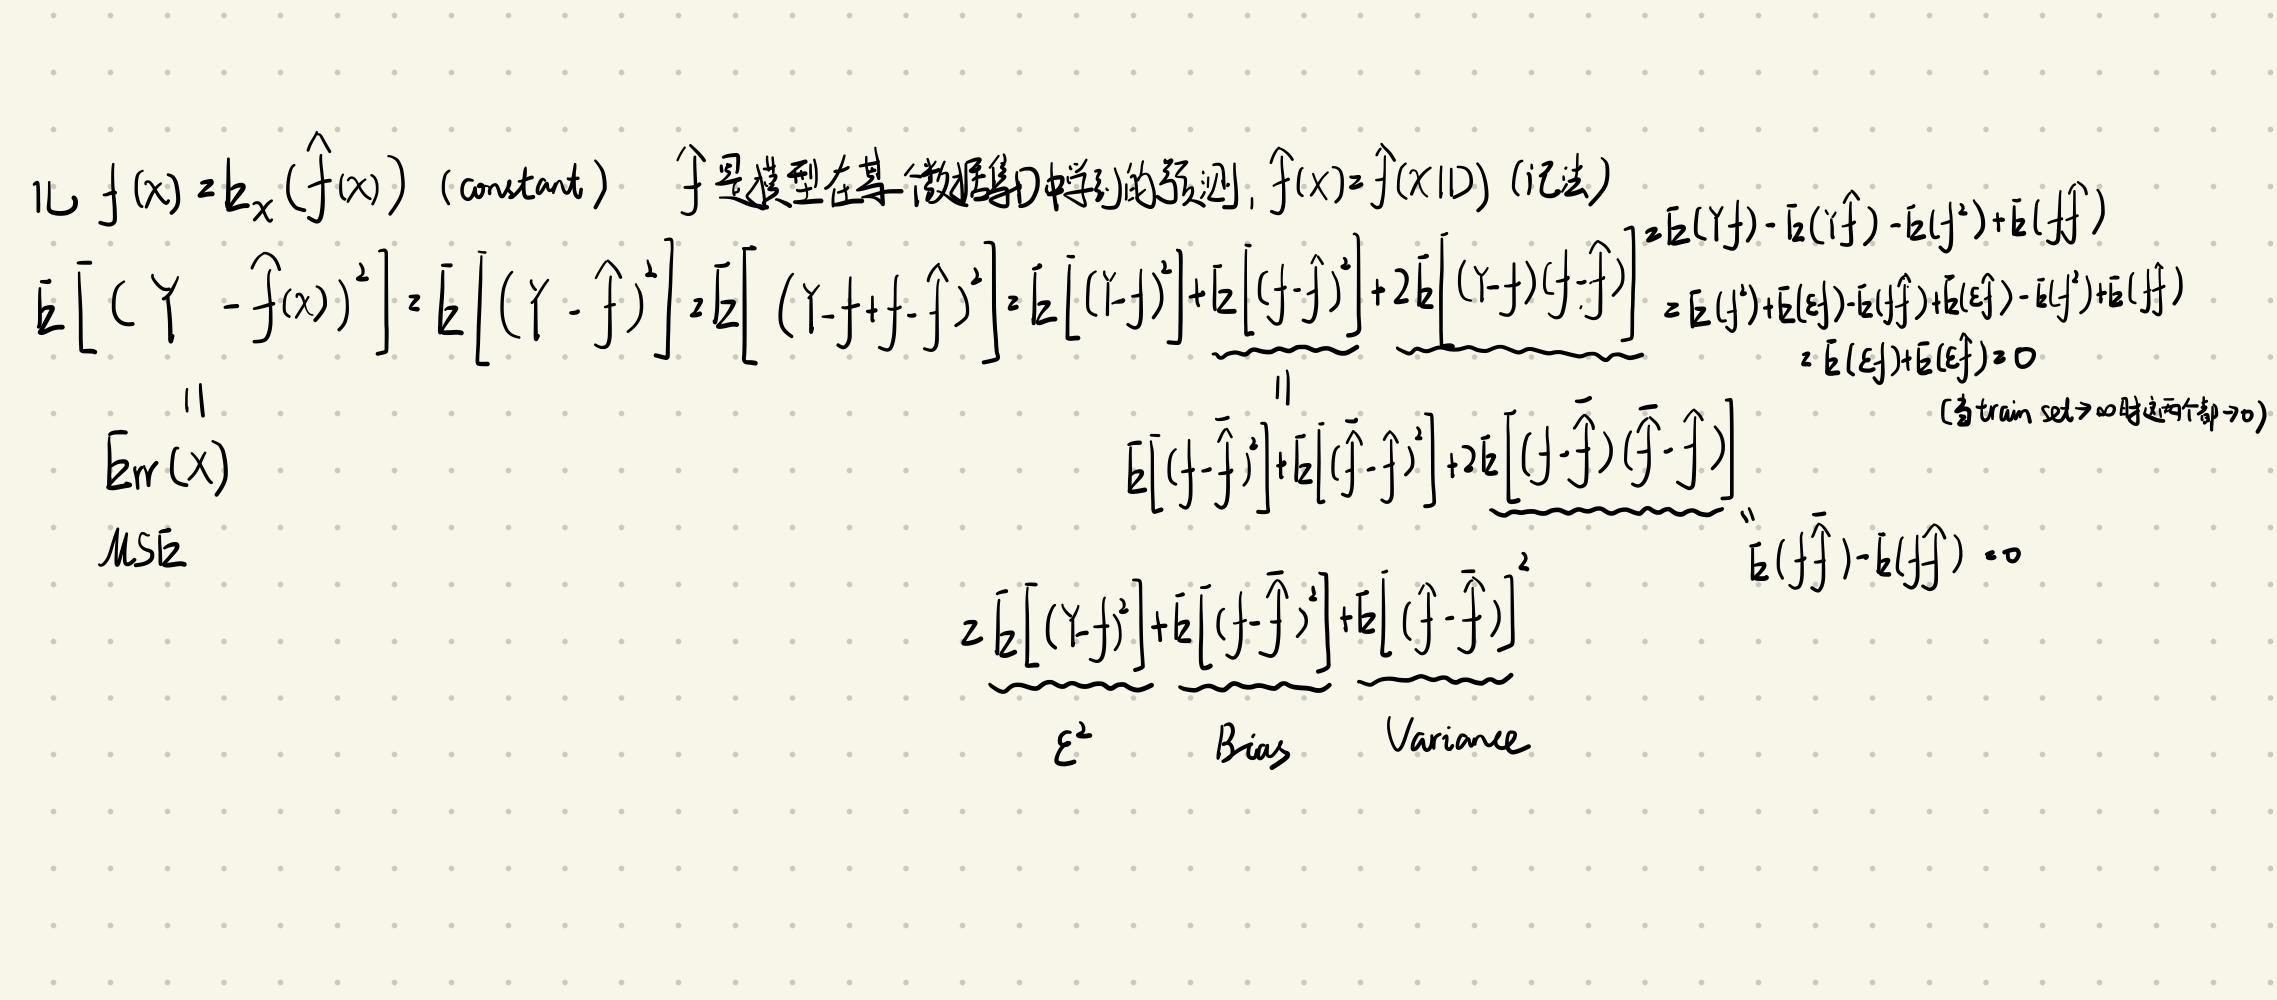 记 f(x) = E_x(f̂(x)) (constant) f̂ 是模型在某个数据集D中学到的预测, f̂(x)=f̂(x|D) (记法)
E[(Y - f̂(x))²] = E[(Y - f̂)²] = E[(Y-f+f-f̂)²] = E[(Y-f)²] + E[(f-f̂)²] + 2E[(Y-f)(f-f̂)]
= E(Yf) - E(Yf̂) - E(f²) + E(ff̂)
= E(f²)+E(εf)-E(ff̂)+E(εf̂)-E(f²)+E(ff̂)
= E(εf)+E(εf̂)=0
(当train set→∞时这两个都→0)
||
Err(x)
MSE
||
E[(f-f̂̄)²]+E[(f̂̄-f̂)²]+2E[(f-f̂̄)(f̂̄-f̂)]
"
E(ff̂̄)-E(ff̂) =0
= E[(Y-f)²]+E[(f-f̂̄)²]+E[(f̂-f̂̄)]²
ε² Bias Variance